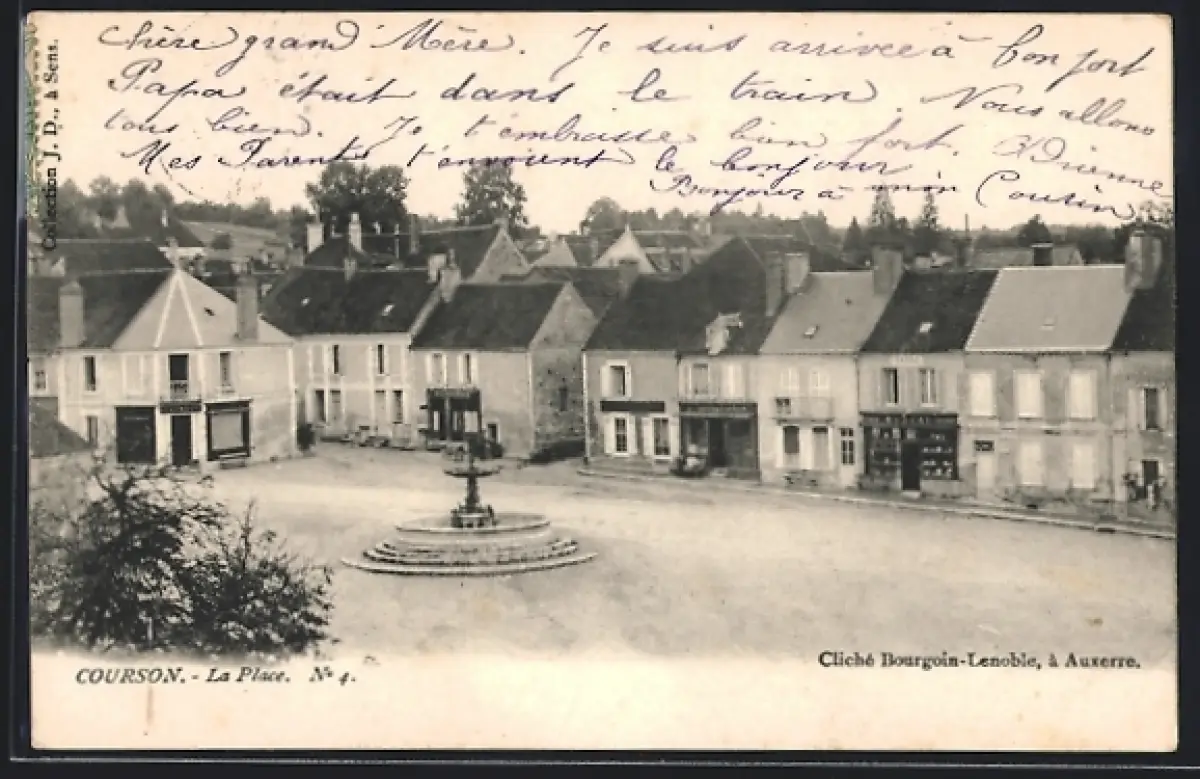 Chère grand Mère. Je suis arrivee à bon port
Papa était dans le train. Nous allons
tous bien. Je t'embrasse bien fort.
Adrienne
Mes Parents t'envoient le bonjour
Bonjour à mon Cousin
Collection J. D., à Sens.
COURSON. - La Place. Nº 4.
Cliché Bourgoin-Lenoble, à Auxerre.